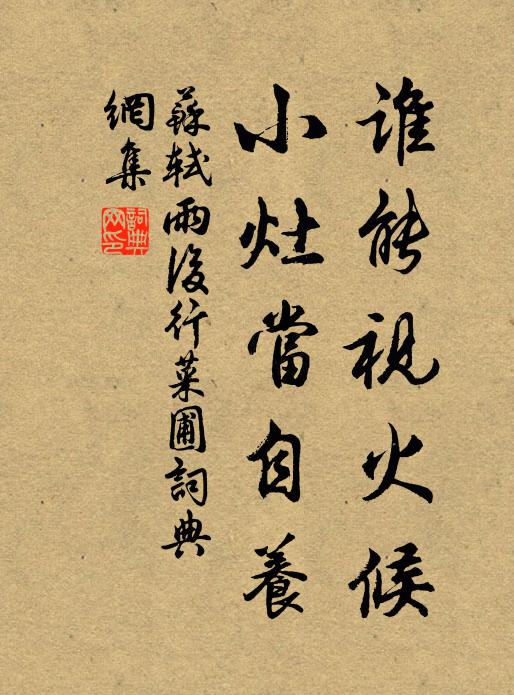 誰能視火候
小灶當自養
蘇軾雨後行菜圃詞典
網集
詞典
网印